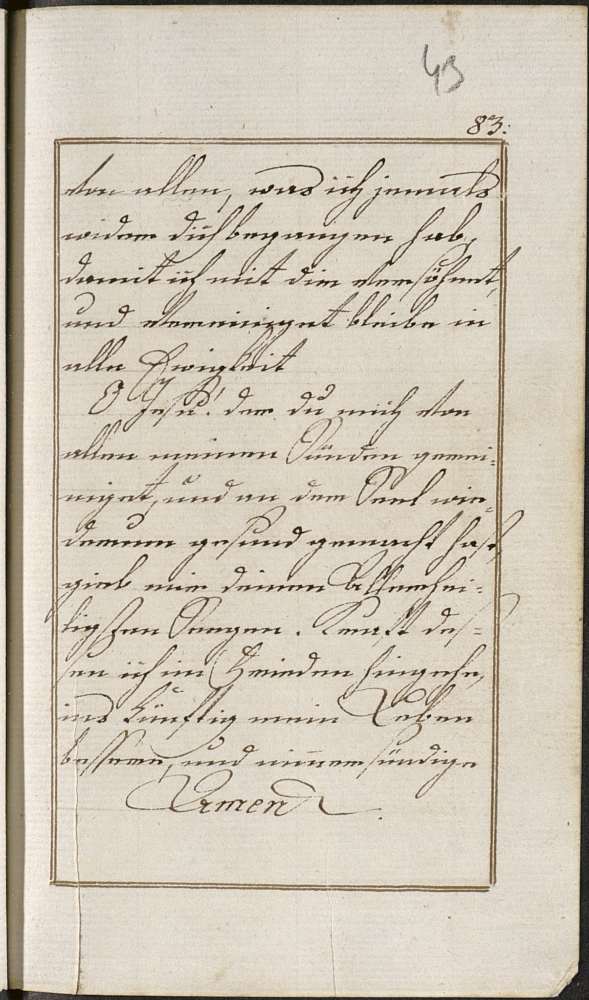 43
83.
von allen, was ich jemals
wider dich begangen hab,
damit ich mit dir versöhnet,
und vereiniget bleibe in
alle Ewigkeit
O Jesu! der du mich von
allen meinen Sünden gerei:
niget, und an der Seel wie=
derum gesund gemacht hast,
gieb mir deinen Allerhei:
ligsten Seegen. Kraft des=
sen ich im Frieden hingehe,
ins künftig mein Leben
bessere, und nimmer sündige
Amen